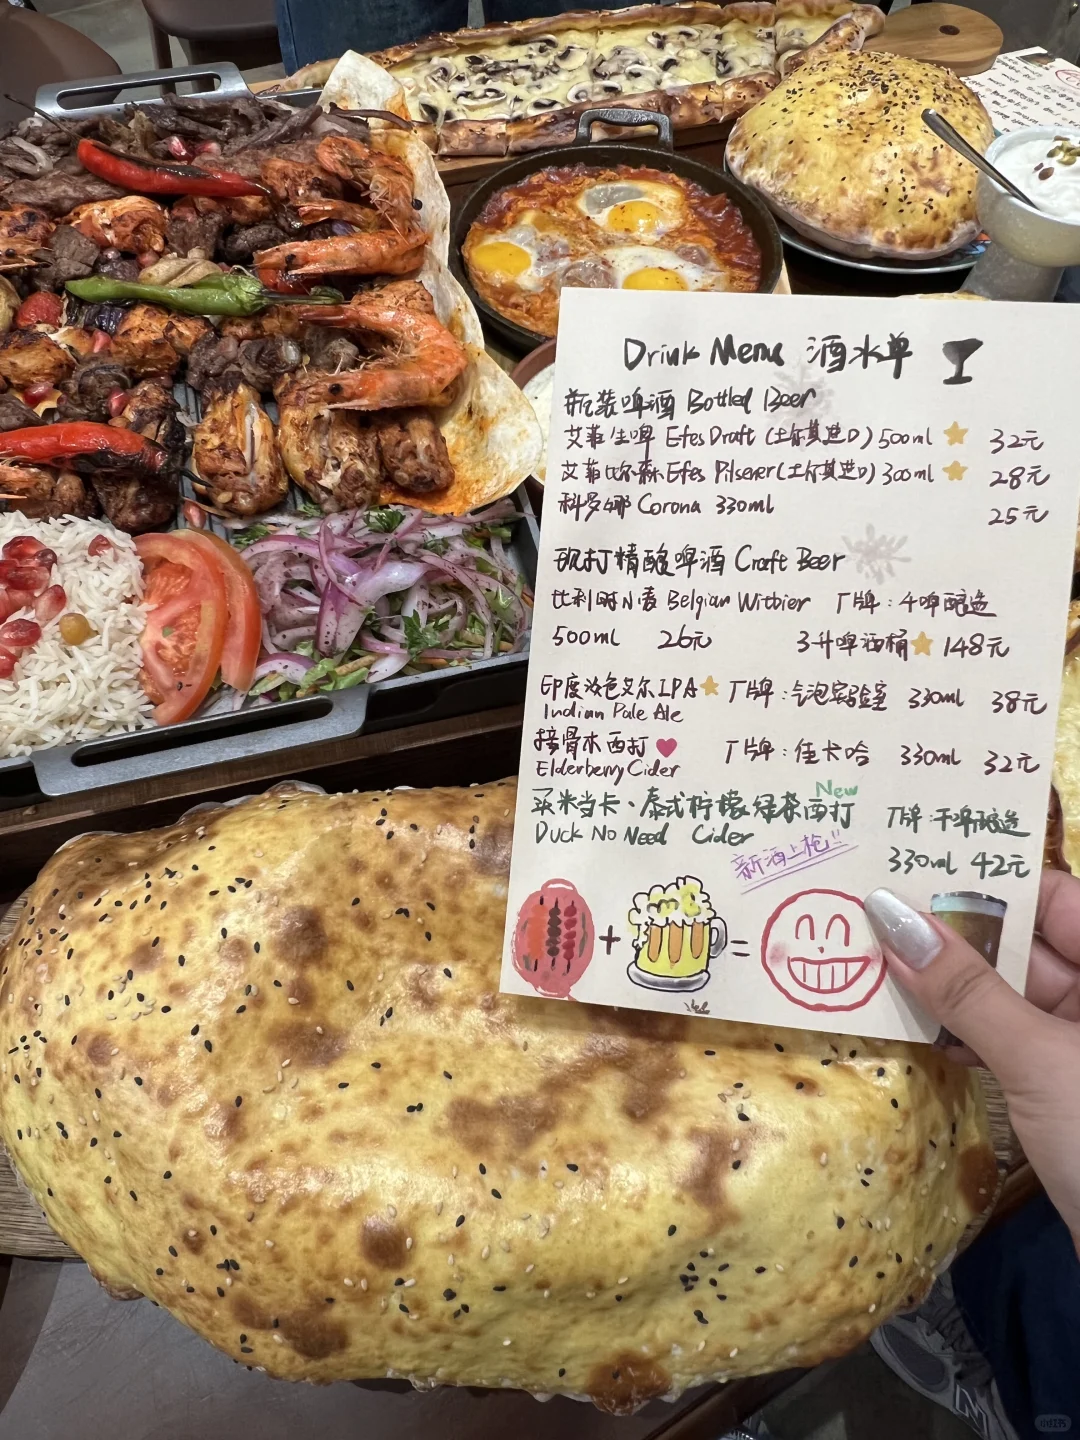 Drink Menu 酒水单
瓶装啤酒 Bottled Beer
艾菲生啤 Efes Draft (土尔其进口) 500ml 32元
艾菲比尔森 Efes Pilsener (土尔其进口) 300ml 28元
科罗娜 Corona 330ml 25元
现打精酿啤酒 Craft Beer
比利时小麦 Belgian Witbier 厂牌:牛啤酿造
500ml 26元 3升啤酒桶 148元
印度淡色艾尔IPA 厂牌:气泡实验室 330ml 38元
Indian Pale Ale
接骨木西打 厂牌:佳卡哈 330ml 32元
Elderberry Cider
New
买米当卡、泰式柠檬绿茶西打 厂牌:干啤酿造
Duck No Need Cider
330ml 42元
新酒上枪!!
+ =
小红书